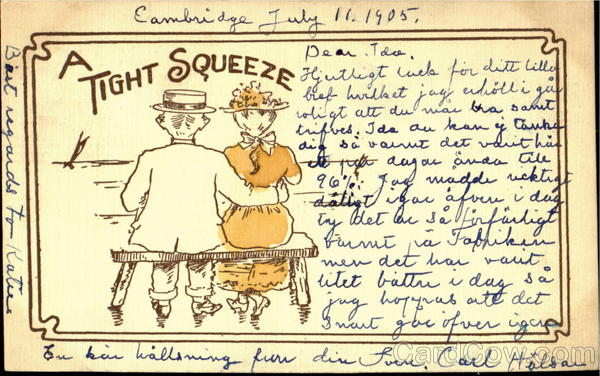 Cambridge July 11. 1905.
A
TIGHT SQUEEZE
Dear Ida.
Hjertligt tack för ditt lilla
bref hvilket jag erhöll i går
roligt att du mår bra samt
trifves. Ida du kan ej tänka
dig så varmt det varit här
ett par dagar ända till
96%. Jag mådde ricktigt
dåligt igår äfven i dag
ty det är så förfärligt
varmt på Fabriken
men det har varit
litet bättre i dag så
jag hoppas att det
snart går öfver igen
En kär hällsning från din Sven. Carl
Bäst regards to Katie
CardCow.com